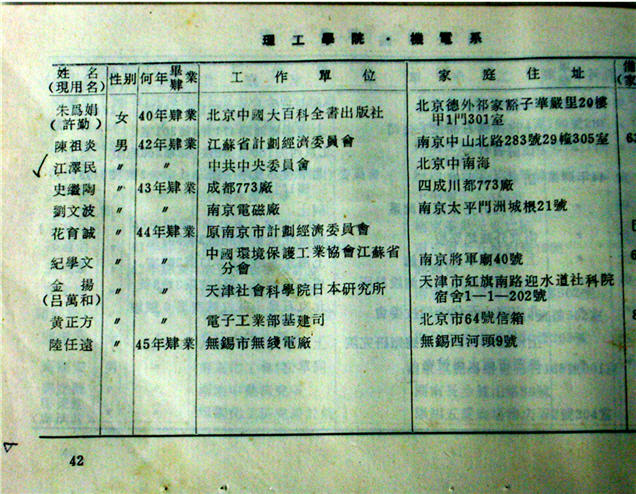 理工學院·機電系
姓名(現用名) 性别 何年畢肄業 工作單位 家庭住址
朱爲娟(許勤) 女 40年肄業 北京中國大百科全書出版社 北京德外祁家豁子華嚴里20樓甲1門301室
陳祖炎 男 42年肄業 江蘇省計劃經濟委員會 南京中山北路283號29幢305室
江澤民 〃 〃 中共中央委員會 北京中南海
史繼陶 〃 43年肄業 成都773廠 四成川都773廠
劉文波 〃 〃 南京電磁廠 南京太平門洲城根21號
花育誠 〃 44年肄業 原南京市計劃經濟委員會
紀學文 〃 〃 中國環境保護工業協會江蘇省分會 南京將軍廟40號
金揚(呂萬和) 〃 〃 天津社會科學院日本研究所 天津市紅旗南路迎水道社科院宿舍1—1—202號
黄正方 〃 〃 電子工業部基建司 北京市64號信箱
陸任遠 〃 45年肄業 無錫市無綫電廠 無錫西河頭9號
42